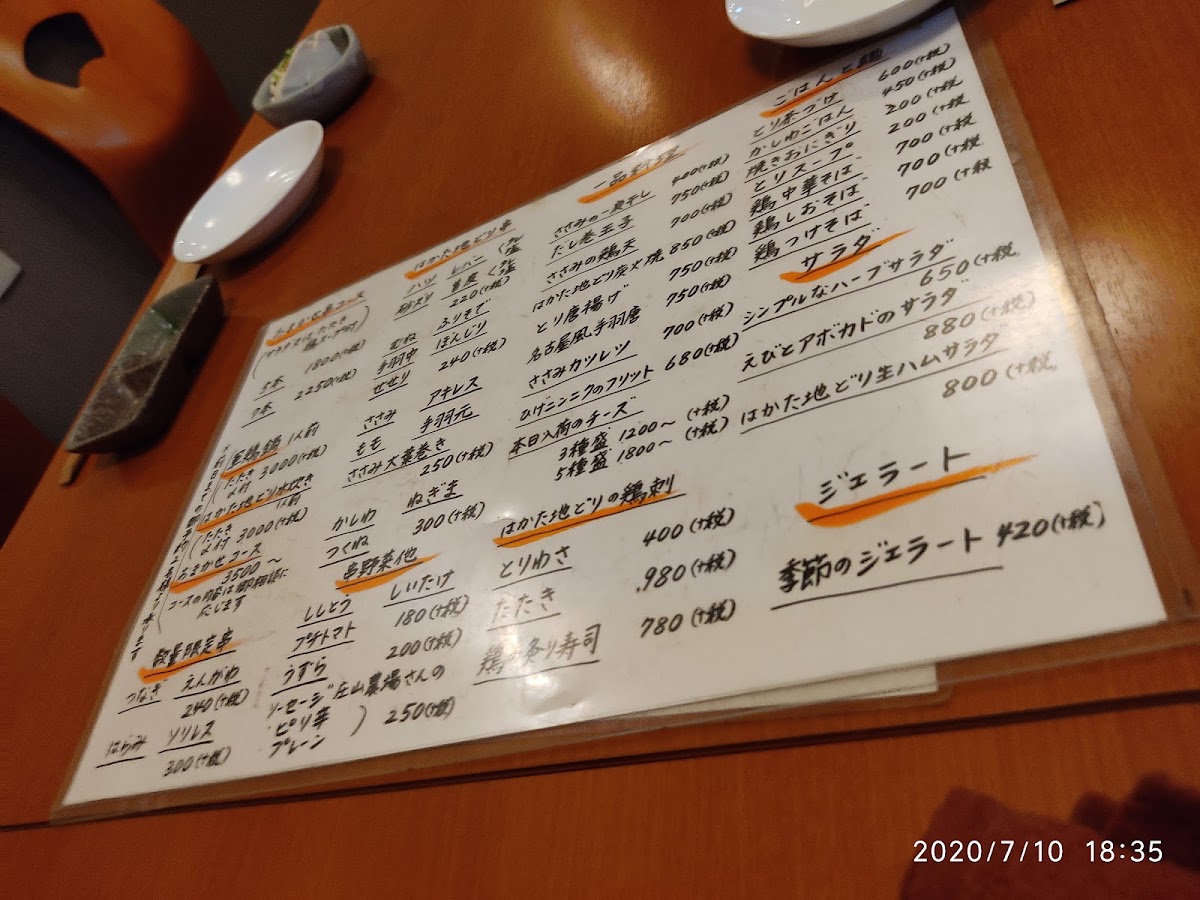 おまかせ串コース
5本 1800(+税)
7本 2250(+税)
軍鶏鍋 1人前
(たたき
〆付 3000(+税)
はかた地どり水炊き
1人前
(たたき
〆付 3000(+税)
おまかせコース
3500〜
(コースの内容は御相談に
応じます
数量限定串
つなぎ えんがわ
240(+税)
はらみ ソリレス
300(+税)
はかた地どり串
ハツ レバー
砂ズリ 首皮
220(+税)
むね ふりそで
手羽中 ぼんじり
せせり 240(+税)
ささみ アキレス
もも 手羽元
ささみ大葉巻き
250(+税)
かしわ ねぎま
つくね 300(+税)
串野菜他
ししとう しいたけ
プチトマト 180(+税)
うずら 200(+税)
ソーセージ
ピリ辛
プレーン ) 250(+税)
一品料理
ささみの一夜干し 400(+税)
だし巻玉子 750(+税)
ささみの鶏天 700(+税)
はかた地どり炭火焼 850(+税)
とり唐揚げ 750(+税)
名古屋風手羽唐 750(+税)
ささみカツレツ 700(+税)
ひげニンニクのフリット 680(+税)
本日入荷のチーズ
3種盛 1200〜 (+税)
5種盛 1800〜 (+税)
はかた地どりの鶏刺
とりわさ 400(+税)
たたき 980(+税)
炙り寿司 780(+税)
ごはんと麺
とり茶づけ 600(+税)
かしわごはん 450(+税)
焼きおにぎり 200(+税)
とりスープ 200(+税
鶏中華そば 700(+税
鶏しおそば 700(+税
鶏つけそば 700(+税
サラダ
シンプルなハーブサラダ
650(+税
えびとアボカドのサラダ
880(+税)
はかた地どり生ハムサラダ
800(+税
ジェラート
季節のジェラート 420(+税)
2020/7/10 18:35